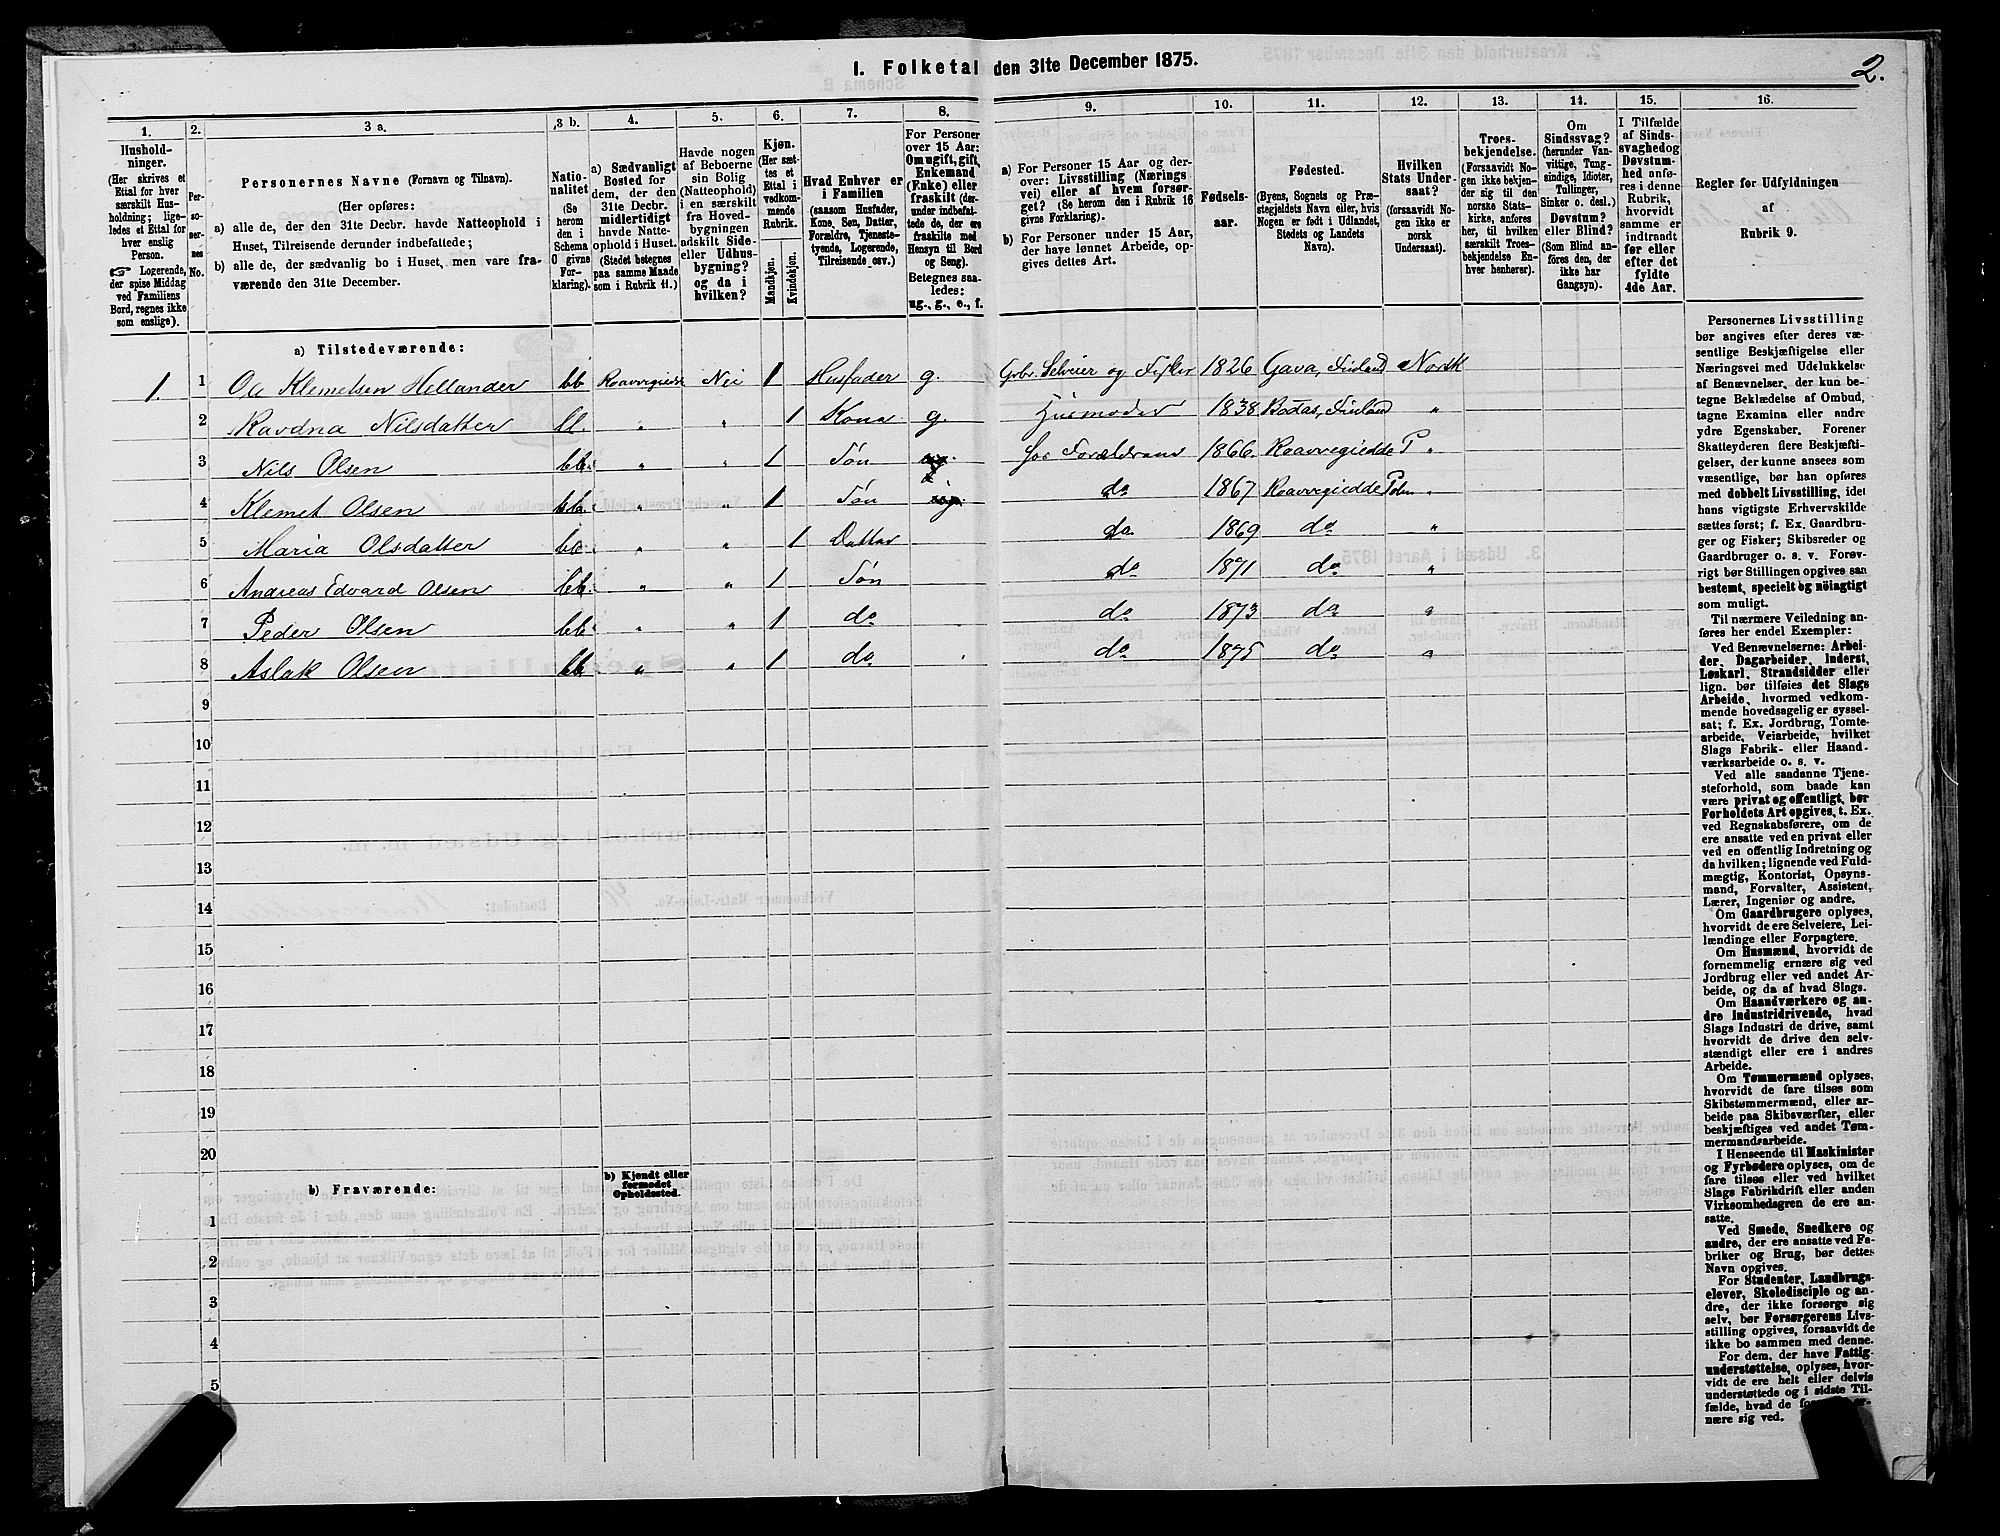 I. Folketal den 31te December 1875.
2.
1.
Husholdninger.
(Her skrives et
Ettal for hver
særskilt Husholdning;
ligeledes et Ettal for
hver enslig
Person.
☞ Logerende,
der spise Middag
ved Familiens
Bord, regnes ikke
som enslige).
2.
Personernes
No.
3 a.
Personernes Navne (Fornavn og Tilnavn).
(Her opføres:
a) alle de, der den 31te Decbr. havde Natteophold i
Huset, Tilreisende derunder indbefattede;
b) alle de, der sædvanlig bo i Huset, men vare fraværende
den 31te December.
3 b.
Nationalitet
(Se
herom
den i
Schema
O givne
Forklaring).
4.
a) Sædvanligt
Bosted for
dem, der den
31te Decbr.
midlertidigt
havde Natteophold
i Huset.
(Stedet betegnes
paa samme Maade
som i Rubrik 11.)
5.
Havde nogen
af Beboerne
sin Bolig
(Natteophold)
i en særskilt
fra Hovedbygningen
adskilt Side-
eller Udhusbygning?
og da i
hvilken?
6.
Kjøn.
(Her sættes
et
Ettal i
vedkommende
Rubrik.
Mandkjøn.
Kvindekjøn.
7.
Hvad Enhver er
i Familien
(saasom Husfader,
Kone, Søn, Datter,
Forældre, Tjenestetyende,
Logerende,
Tilreisende osv.)
8.
For Personer
over 15 Aar:
Om ugift, gift,
Enkemand
(Enke) eller
fraskilt (derunder
indbefattede
de, der ere
fraskilte med
Hensyn til Bord
og Seng).
Betegnes saaledes:
ug., g., e., f.
9.
a) For Personer 15 Aar og derover:
Livsstilling (Næringsvei)
eller af hvem forsørget?
(Se herom den i Rubrik 16
givne Forklaring).
b) For Personer under 15 Aar,
der have lønnet Arbeide, opgives
dettes Art.
10.
Fødselsaar.
11.
Fødested.
(Byens, Sognets og Præstegjeldets
Navn eller, hvis
Nogen er født i Udlandet,
Stedets og Landets
Navn).
12.
Hvilken
Stats Undersaat?
(forsaavidt Nogen
ikke er
norsk
Undersaat).
13.
Troesbekjendelse.
(Forsaavidt Nogen
ikke bekjender
sig til den
norske Statskirke,
anføres
her, til hvilken
særskilt Troesbekjendelse
Enhver
henhører).
14.
Om
Sindssvag?
(herunder Vanvittige,
Tungsindige,
Idioter,
Tullinger,
Sinker o. desl.)
Døvstum?
eller Blind?
(Som Blind anføres
den, der
ikke har
Gangsyn).
15.
I Tilfælde
af Sindssvaghed
og
Døvstumhed
anføres
i denne
Rubrik,
hvorvidt
samme er
indtraadt
før eller
efter det
fyldte
4de Aar.
16.
Regler for Udfyldningen
af
Rubrik 9.
a) Tilstedeværende:
1. 1 Ole Klemetsen Hellander bb Raavvegiedde Nei 1 Husfader g. Grbr. Selveier og Fisker 1826 Gava, Finland Norsk
2 Ravdna Nilsdatter bb. " " 1 Kona g. Husmoder 1838 Bodas, Finland "
3 Nils Olsen bb. " " 1 Søn ug. hos Forældrene 1866 Raavvegiedde P "
4 Klemet Olsen bb. " " 1 Søn ug. do 1867 Raavvegiedde Polm "
5 Maria Olsdatter bb. " " 1 Datter do 1869 do "
6 Andreas Edvard Olsen bb. " " 1 Søn do 1871 do "
7 Peder Olsen bb. " " 1 do do 1873 do "
8 Aslak Olsen bb. " " 1 do do 1875 do "
9
10
11
12
13
14
15
16
17
18
19
20
b) Fraværende:
b) Kjendt eller
formodet
Opholdssted.
1
2
3
4
5
Personernes Livsstilling
bør angives efter deres væsentlige
Beskjæftigelse eller
Næringsvei med Udelukkelse
af Benævnelser, der kun betegne
Beklædelse af Ombud,
tagne Examina eller andre
ydre Egenskaber. Forener
Skatteyderen flere Beskjæftigelser,
der kunne ansees som
væsentlige, bør han opføres
med dobbelt Livsstilling, idet
hans vigtigste Erhvervskilde
sættes først; f. Ex. Gaardbruger
og Fisker; Skibsreder og
Gaardbruger o. s. v. Forøvrigt
bør Stillingen opgives saa
bestemt, specielt og nøiagtigt
som muligt.
Til nærmere Veiledning anføres
her endel Exempler:
Ved Benævnelserne: Arbeider,
Dagarbeider, Inderst,
Løskarl, Strandsidder eller
lign. bør tilføies det Slags
Arbeide, hvormed vedkommende
hovedsagelig er sysselsat;
f. Ex. Jordbrug, Tomtearbeide,
Veiarbeide, hvilket
Slags Fabrik- eller Haandværksarbeide
o. s. v.
Ved alle saadanne Tjenesteforhold,
som baade kan
være privat og offentligt, bør
Forholdets Art opgives, t. Ex.
ved Regnskabsførere, om de
ere ansatte ved en privat eller
ved en offentlig Indretning og
da hvilken; lignende ved Fuldmægtig,
Kontorist, Opsynsmand,
Forvalter, Assistent,
Lærer, Ingeniør og andre.
Om Gaardbrugere oplyses,
hvorvidt de ere Selveiere, Leilændinge
eller Forpagtere.
Om Husmænd, hvorvidt de
fornemmelig ernære sig ved
Jordbrug eller ved andet Arbeide,
og da af hvad Slags.
Om Haandværkere og andre
Industridrivende, hvad
Slags Industri de drive, samt
hvorvidt de drive den selvstændigt
eller ere i andres
Arbeide.
Om Tømmermænd oplyses,
hvorvidt de fare tilsøs som
Skibstømmermænd, eller arbeide
paa Skibsværfter, eller
beskjæftiges ved andet Tømmermandsarbeide.
I Henseende til Maskinister
og Fyrbødere oplyses, om de
fare tilsøs eller ved hvilket
Slags Fabrikdrift eller anden
Virksomhedsgren de ere ansatte.
Ved Smede, Snedkere og
andre, der ere ansatte ved Fabriker
og Brug, bør dettes
Navn opgives.
For Studenter, Landbrugselever,
Skoledisciple og andre,
der ikke forsørge sig
selv, bør Forsørgerens Livsstilling
opgives, forsaavidt de
ikke bo sammen med denne.
For dem, der have Fattigunderstøttelse,
oplyses, hvorvidt
de ere helt eller delvis
understøttede og i sidste Tilfælde,
hvad de
nære sig ved.